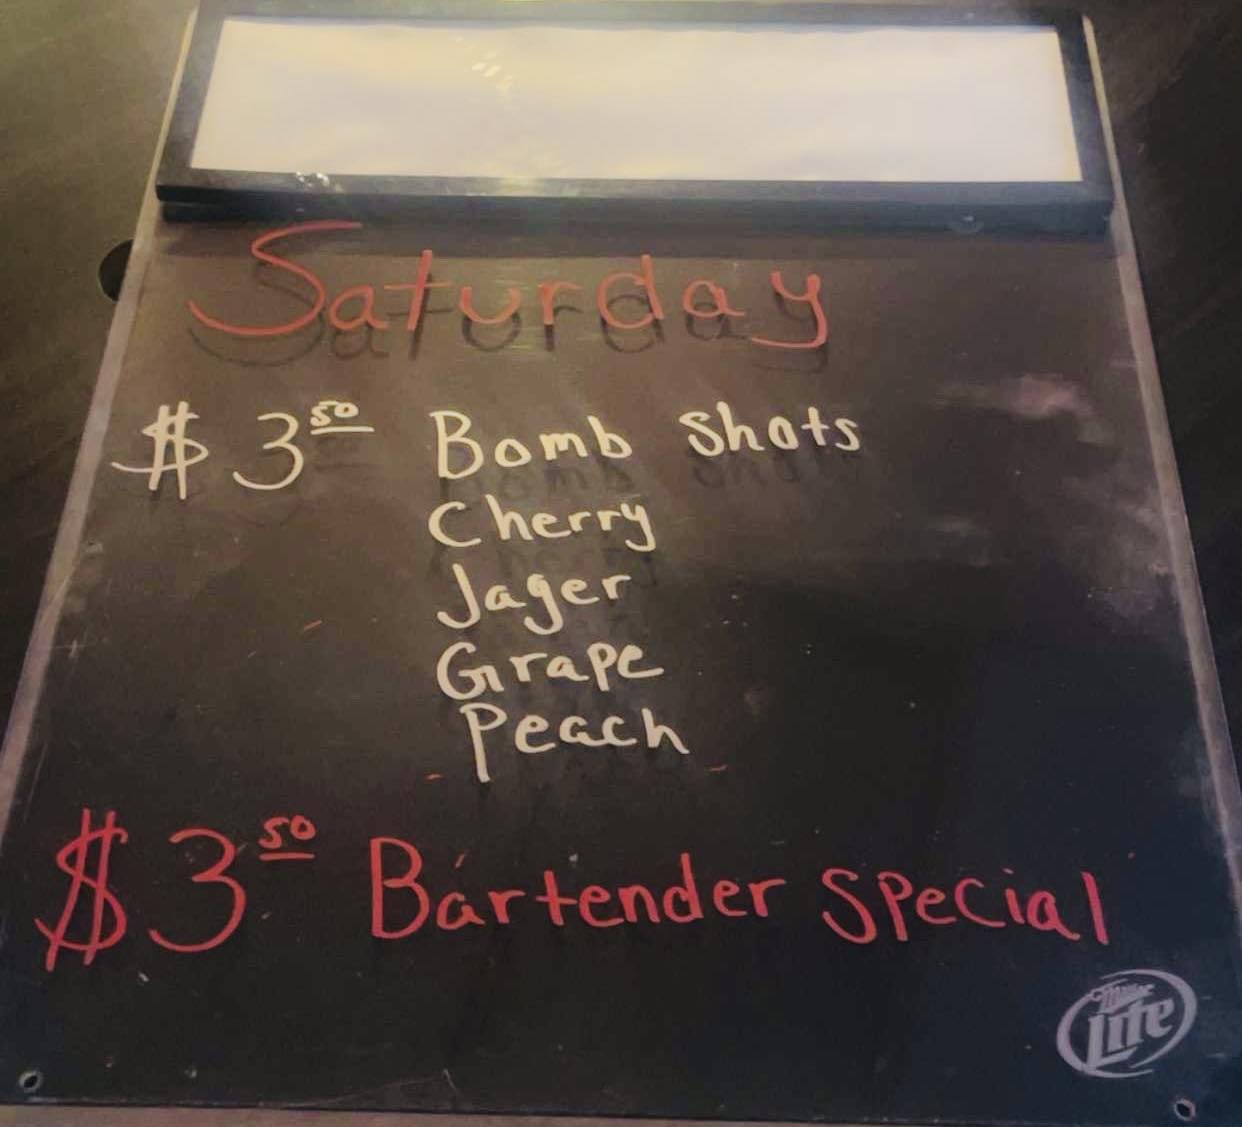 Saturday
$3.50 Bomb Shots
Cherry
Jager
Grape
Peach
$3.50 Bartender Special
Miller
Lite